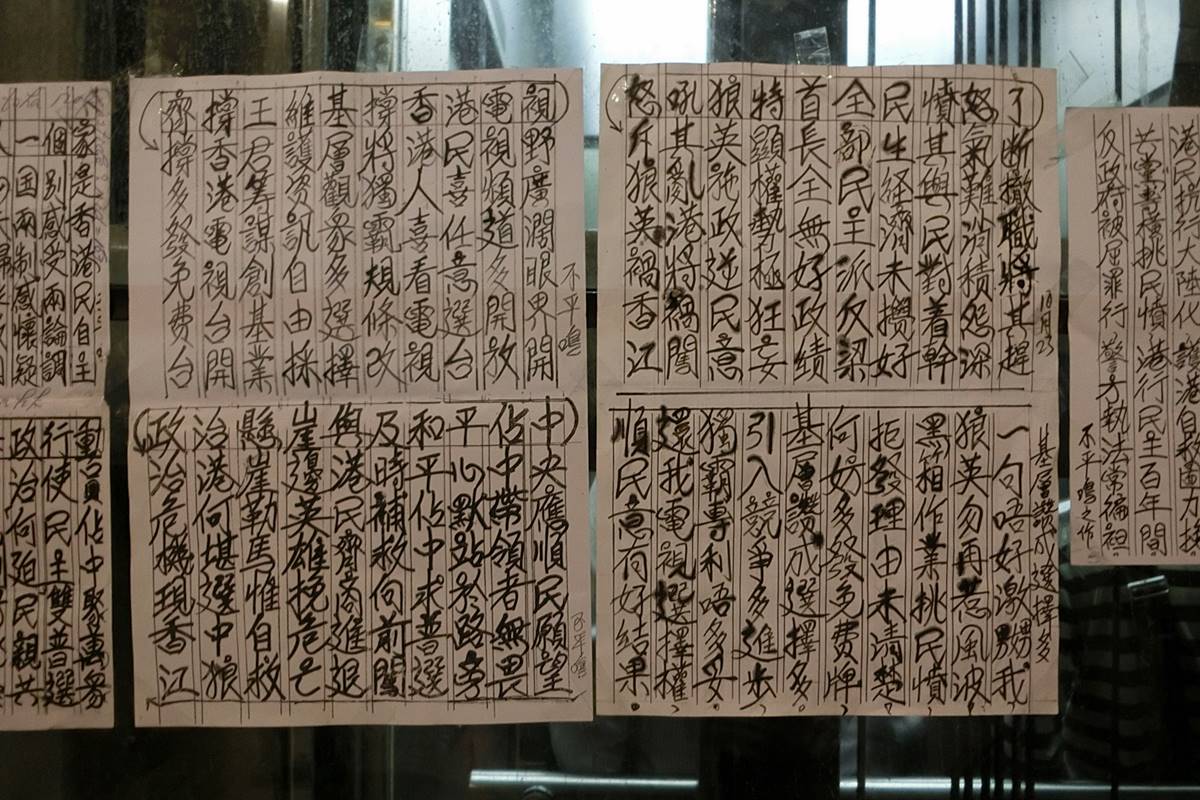 港民抗拒大陸化
港自救
共黨書橫挑民憤 港行民生百年間
反政府被屈罪行 警方執法常偏袒
不平鳴之作
10月23
了斷撤職將其趕
怒氣難消積怨深
憤其與民對着幹
民生経濟未攪好
全部民主派反梁
首長全無好政績
特顯權勢極狂妄
狼英施政逆民意
吼其亂港將禍闖
怒斥狼英禍香江
基層讚成選擇多
一句唔好激嬲我
狼英勿再惹風波
黑箱作業挑民憤
拒發理由未清楚
何妨多發免费牌
基層讚成選擇多
引入競爭多進步
獨霸專利唔多妥
還我電視選擇權
順民意有好結果
不平鳴
視野廣濶眼界開
電視頻道多開放
港民喜任意選台
香港人喜看電視
撐將獨霸規條改
基層觀眾多選擇
維護资訊自由採
王君籌謀創基業
撐香港電視台開
齊撐多發免费台
不平鳴
中央應順民願望
佔中帶領者無畏
平心默站於路旁
和平佔中求普選
及時補救向前闖
與港民齊商進退
崖邊英雄挽危亡
懸崖勒馬惟自救
治港何堪選中狼
政治危機現香江
家是香港民自主
個別感受兩論調
一国兩制感懷疑
動員佔中聚萬眾
行使民主雙普選
政治何迫民親共